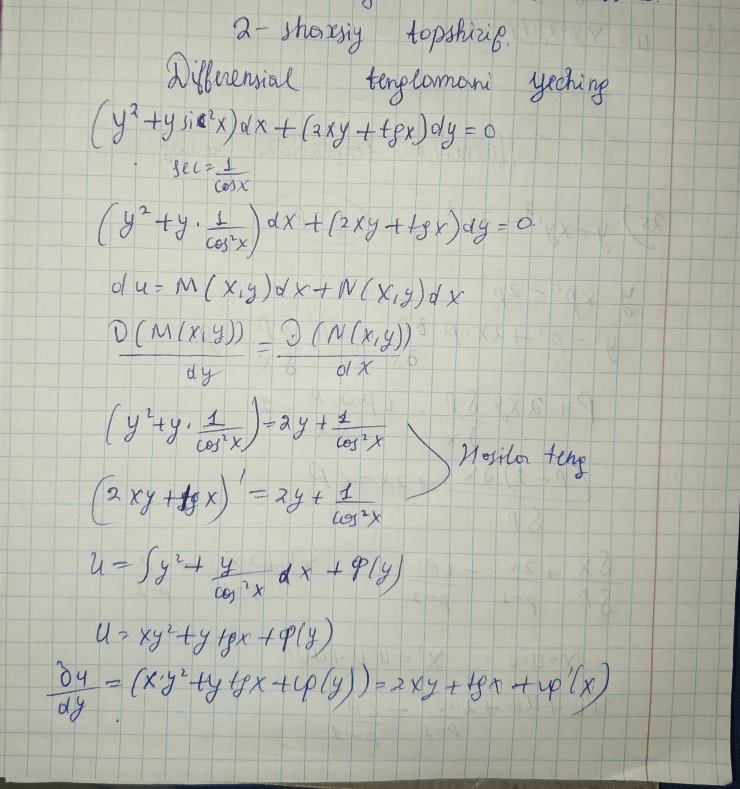 2- shaxsiy topshiriq.
Differensial tenglamani yeching
(y² + y sec²x)dx + (2xy + tgx)dy = 0
sec = 1/cosx
(y² + y · 1/cos²x) dx + (2xy + tgx)dy = 0.
du = M(x,y)dx + N(x,y)dx
∂(M(x,y))/dy = ∂(N(x,y))/dx
(y² + y · 1/cos²x) = 2y + 1/cos²x
Hosila teng
(2xy + tgx)' = 2y + 1/cos²x
u = ∫y² + y/cos²x dx + φ(y)
u = xy² + y tgx + φ(y)
∂u/dy = (x·y² + y tgx + φ(y)) = 2xy + tgx + φ'(x)